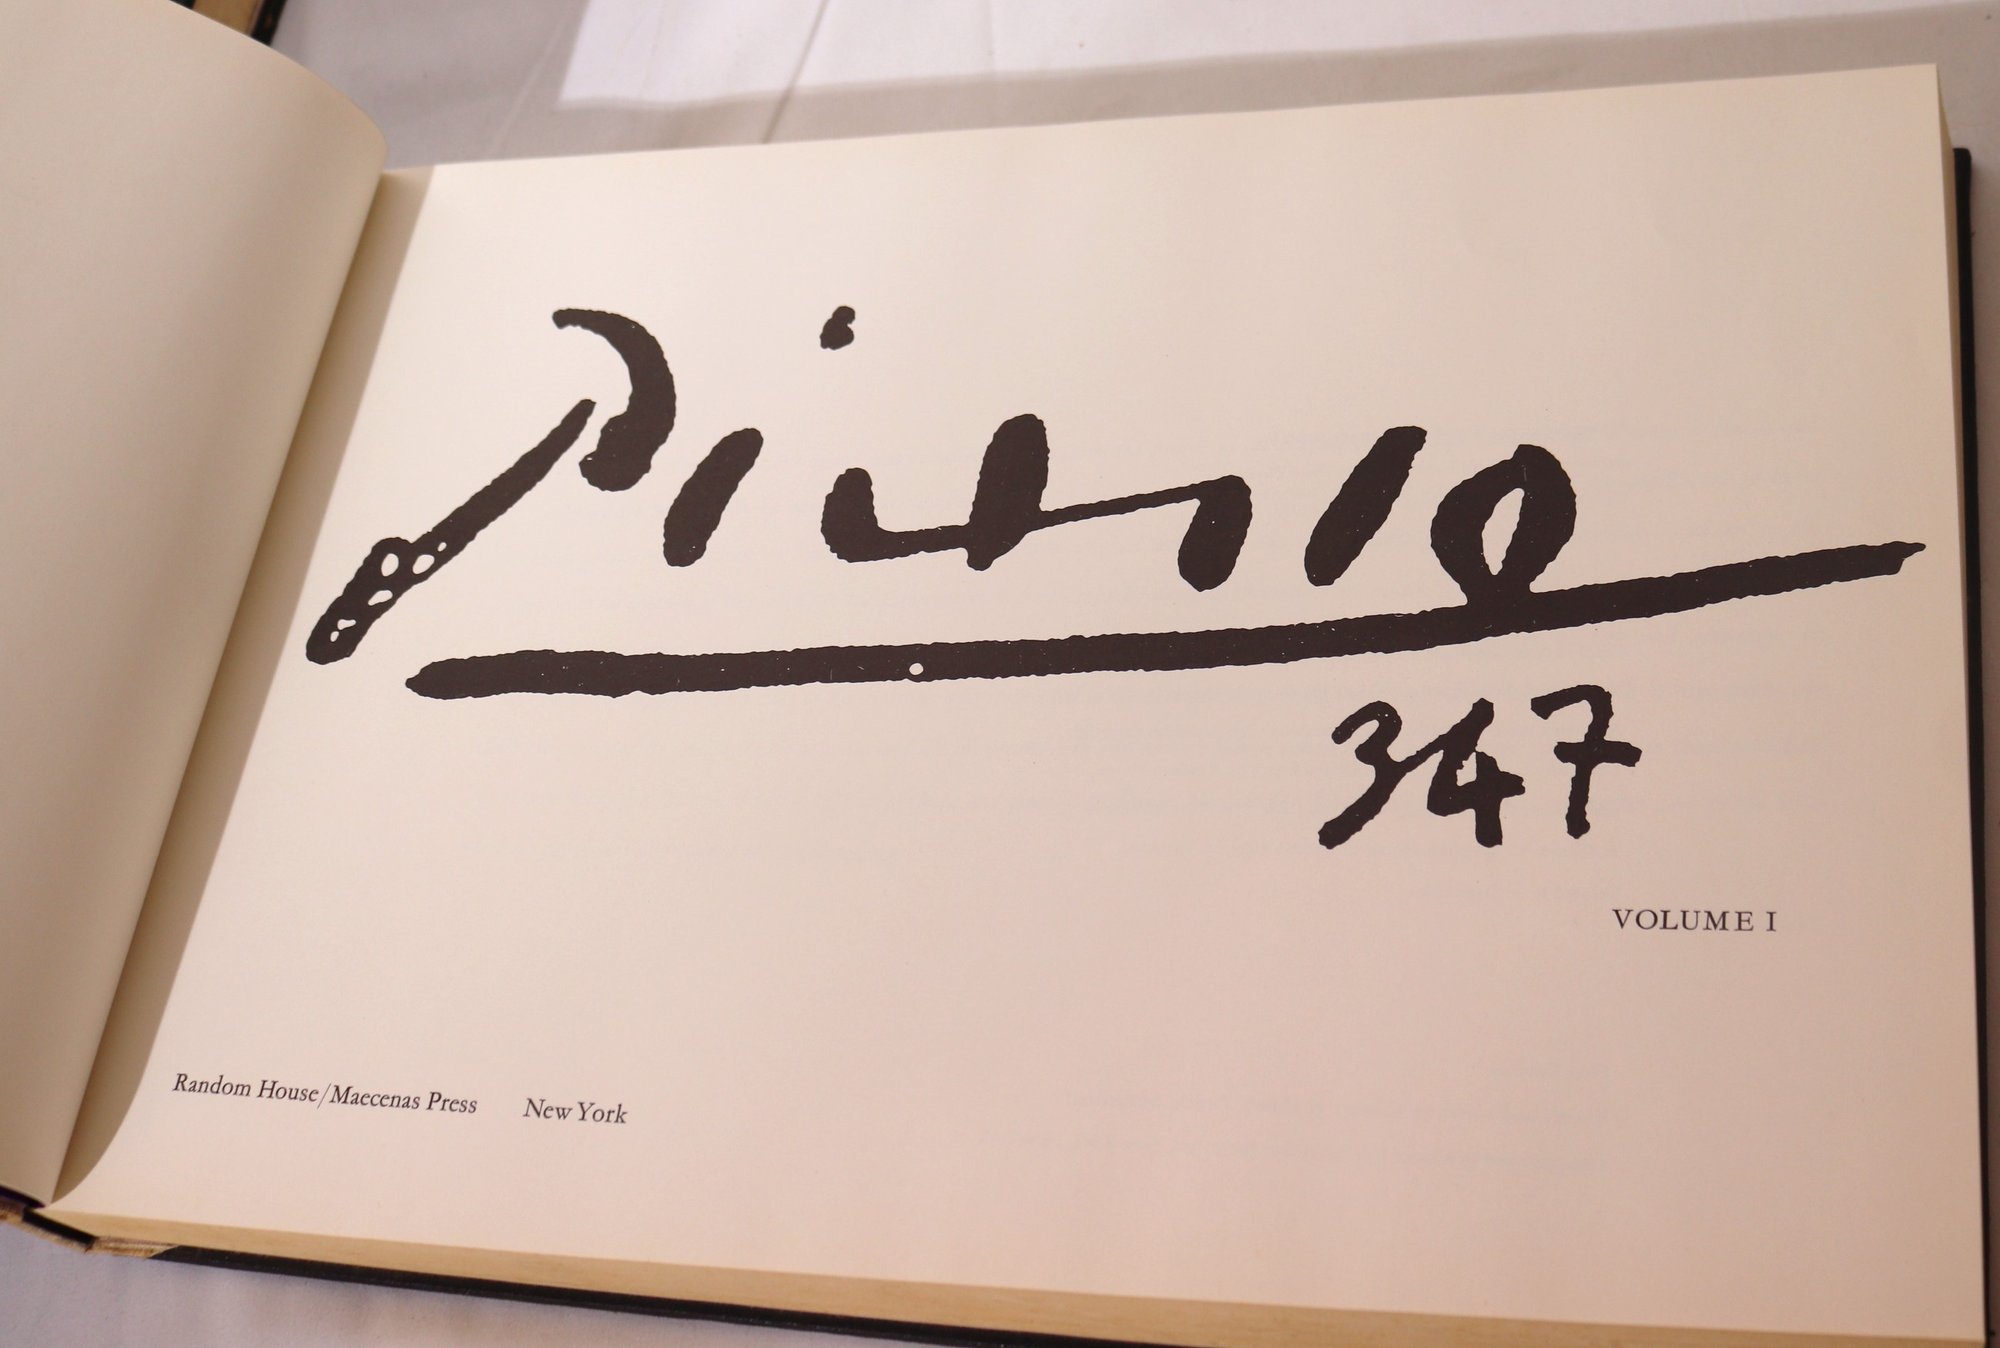 Picasso
347
VOLUME I
Random House/Maecenas Press New York